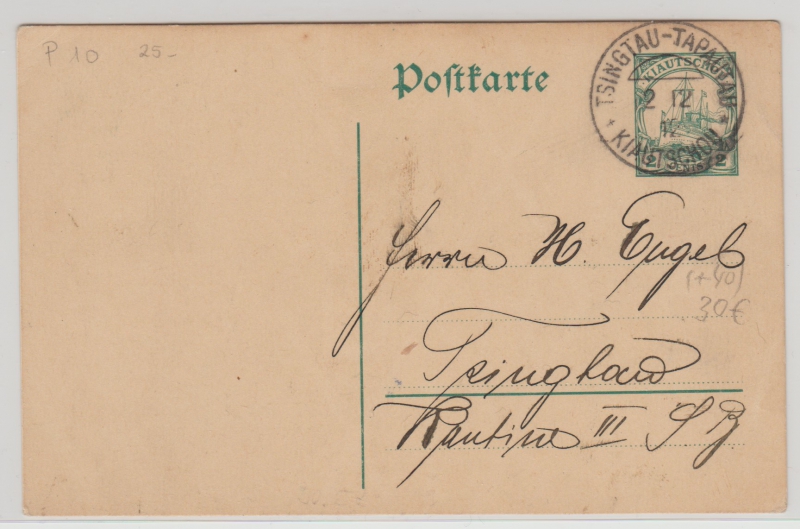 P 10 25-
Postkarte
TSINGTAU-TAPAUTAU
2 12
12
* KIAUTSCHOU *
KIAUTSCHOU
2 CENTS 2
Herrn H. Engel
(+40)
30€
Tsingtau
Kantine III S B